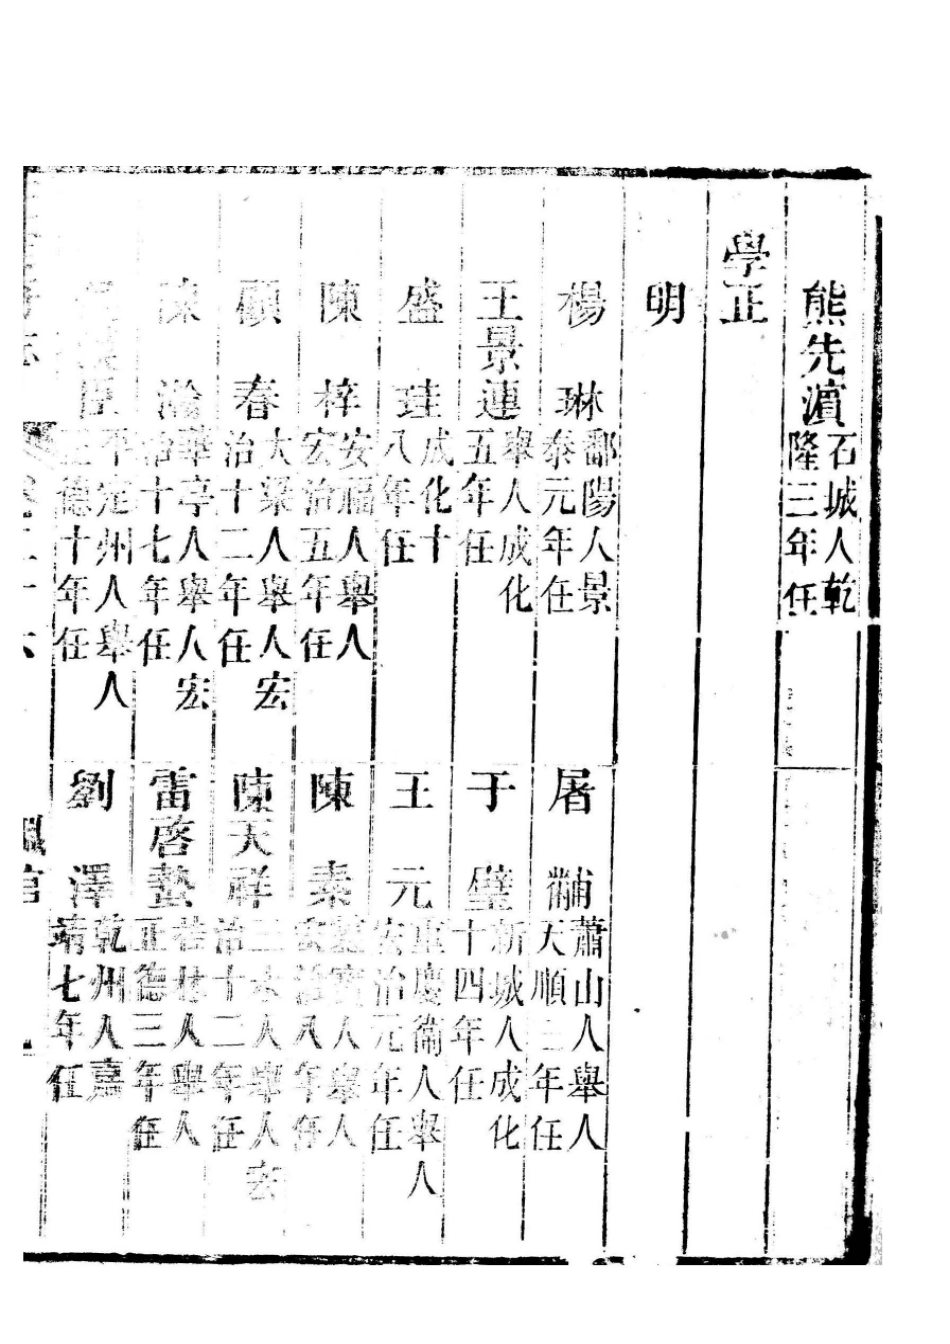 熊先濵 石城人乾隆三年任
學正
明
楊琳 鄱陽人景泰元年任
屠黼 蕭山人舉人天順二年任
王景連 舉人成化五年任
于璧 新城人成化十四年任
盛珪 成化十八年任
王元 重慶衞人舉人宏治元年任
陳梓 安福人舉人宏治五年任
陳素 人舉人宏治八年任
顧春 大梁人舉人宏治十二年任
陳天祥 三水人舉人宏治十二年任
陳瀚 華亭人舉人宏治十七年任
雷啓蟄 人舉人正德三年任
臣 平定州人舉人正德十年任
劉澤 乾州人嘉靖七年任
卷二十六